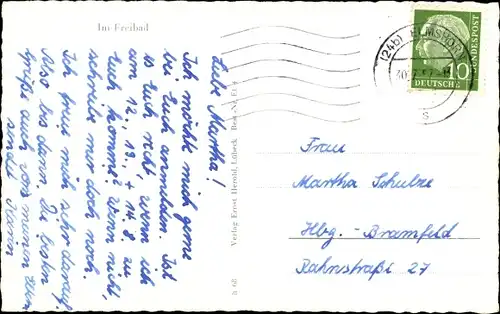 Im Freibad
Liebe Martha!
Ich möchte mich gerne
bei Euch anmelden. Ist
es Euch recht, wenn ich
am 12., 13., + 14.8. zu
Euch komme? Wenn nicht,
schreibe mir doch noch.
Ich freue mich schon darauf.
Also bis dann. Die besten
Grüße auch von meinen Eltern
sendet
Verlag Ernst Herold, Lübeck
(24b) ELMSHORN
DEUTSCHE
BUNDESPOST
10
Frau
Martha Schulze
Hbg.-Bramfeld
Rahnstraßi 27